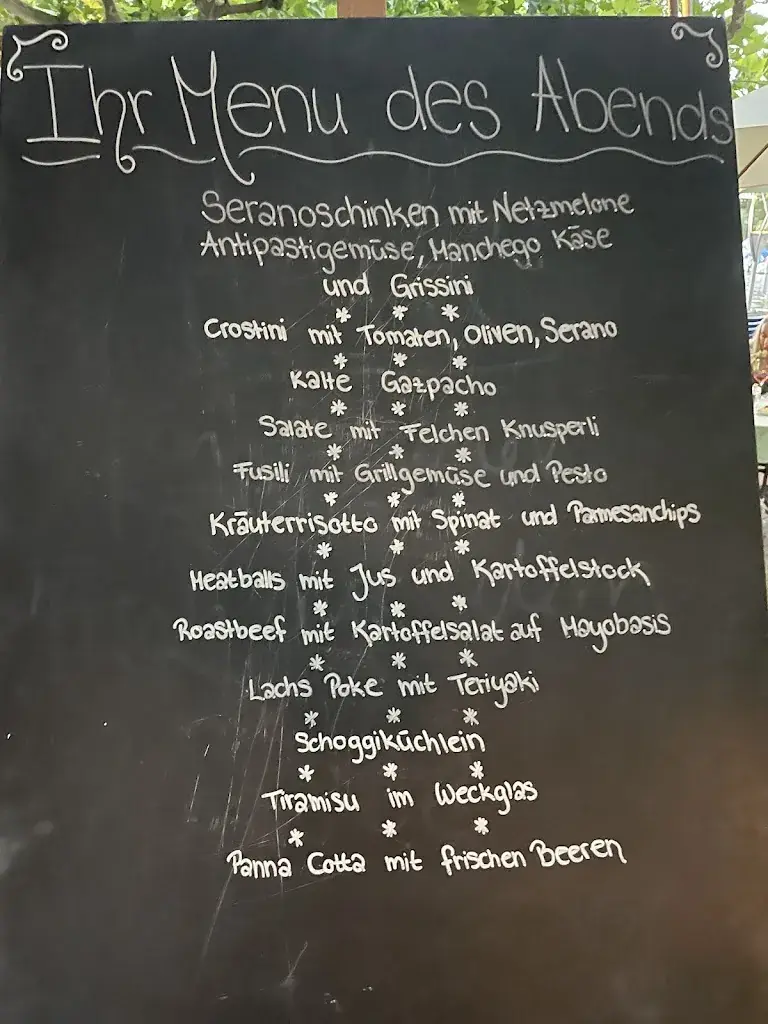 Ihr Menu des Abends
Seranoschinken mit Netzmelone
Antipastigemüse, Manchego Käse
und Grissini
* * *
Crostini mit Tomaten, Oliven, Serano
* * *
Kalte Gazpacho
* * *
Salate mit Felchen Knusperli
* * *
Fusili mit Grillgemüse und Pesto
* * *
Kräuterrisotto mit Spinat und Parmesanchips
* * *
Meatballs mit Jus und Kartoffelstock
* * *
Roastbeef mit Kartoffelsalat auf Mayobasis
* * *
Lachs Poke mit Teriyaki
* * *
Schoggiküchlein
* * *
Tiramisu im Weckglas
* * *
Panna Cotta mit frischen Beeren